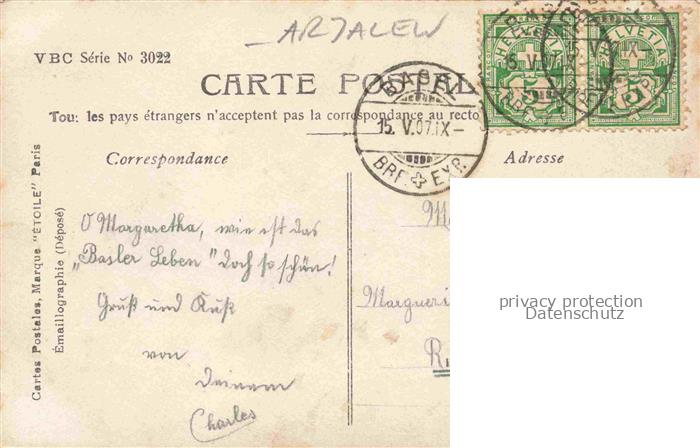 ARTALEW
VBC Série No 3022
CARTE POSTAL
Tous les pays étrangers n'acceptent pas la correspondance au recto
Correspondance
Adresse
HELVETIA
5
HELVETIA
5
BASEL
15. V. 07. IX –
BRF. EXP.
Cartes Postales, Marque "ÉTOILE" Paris
Émaillographie (Déposé)
O Margaretha, wie ist das
„Basler Leben" doch so schön!
Gruß und Kuß
von
Deinem
Charles
Margueri
privacy protection
Datenschutz